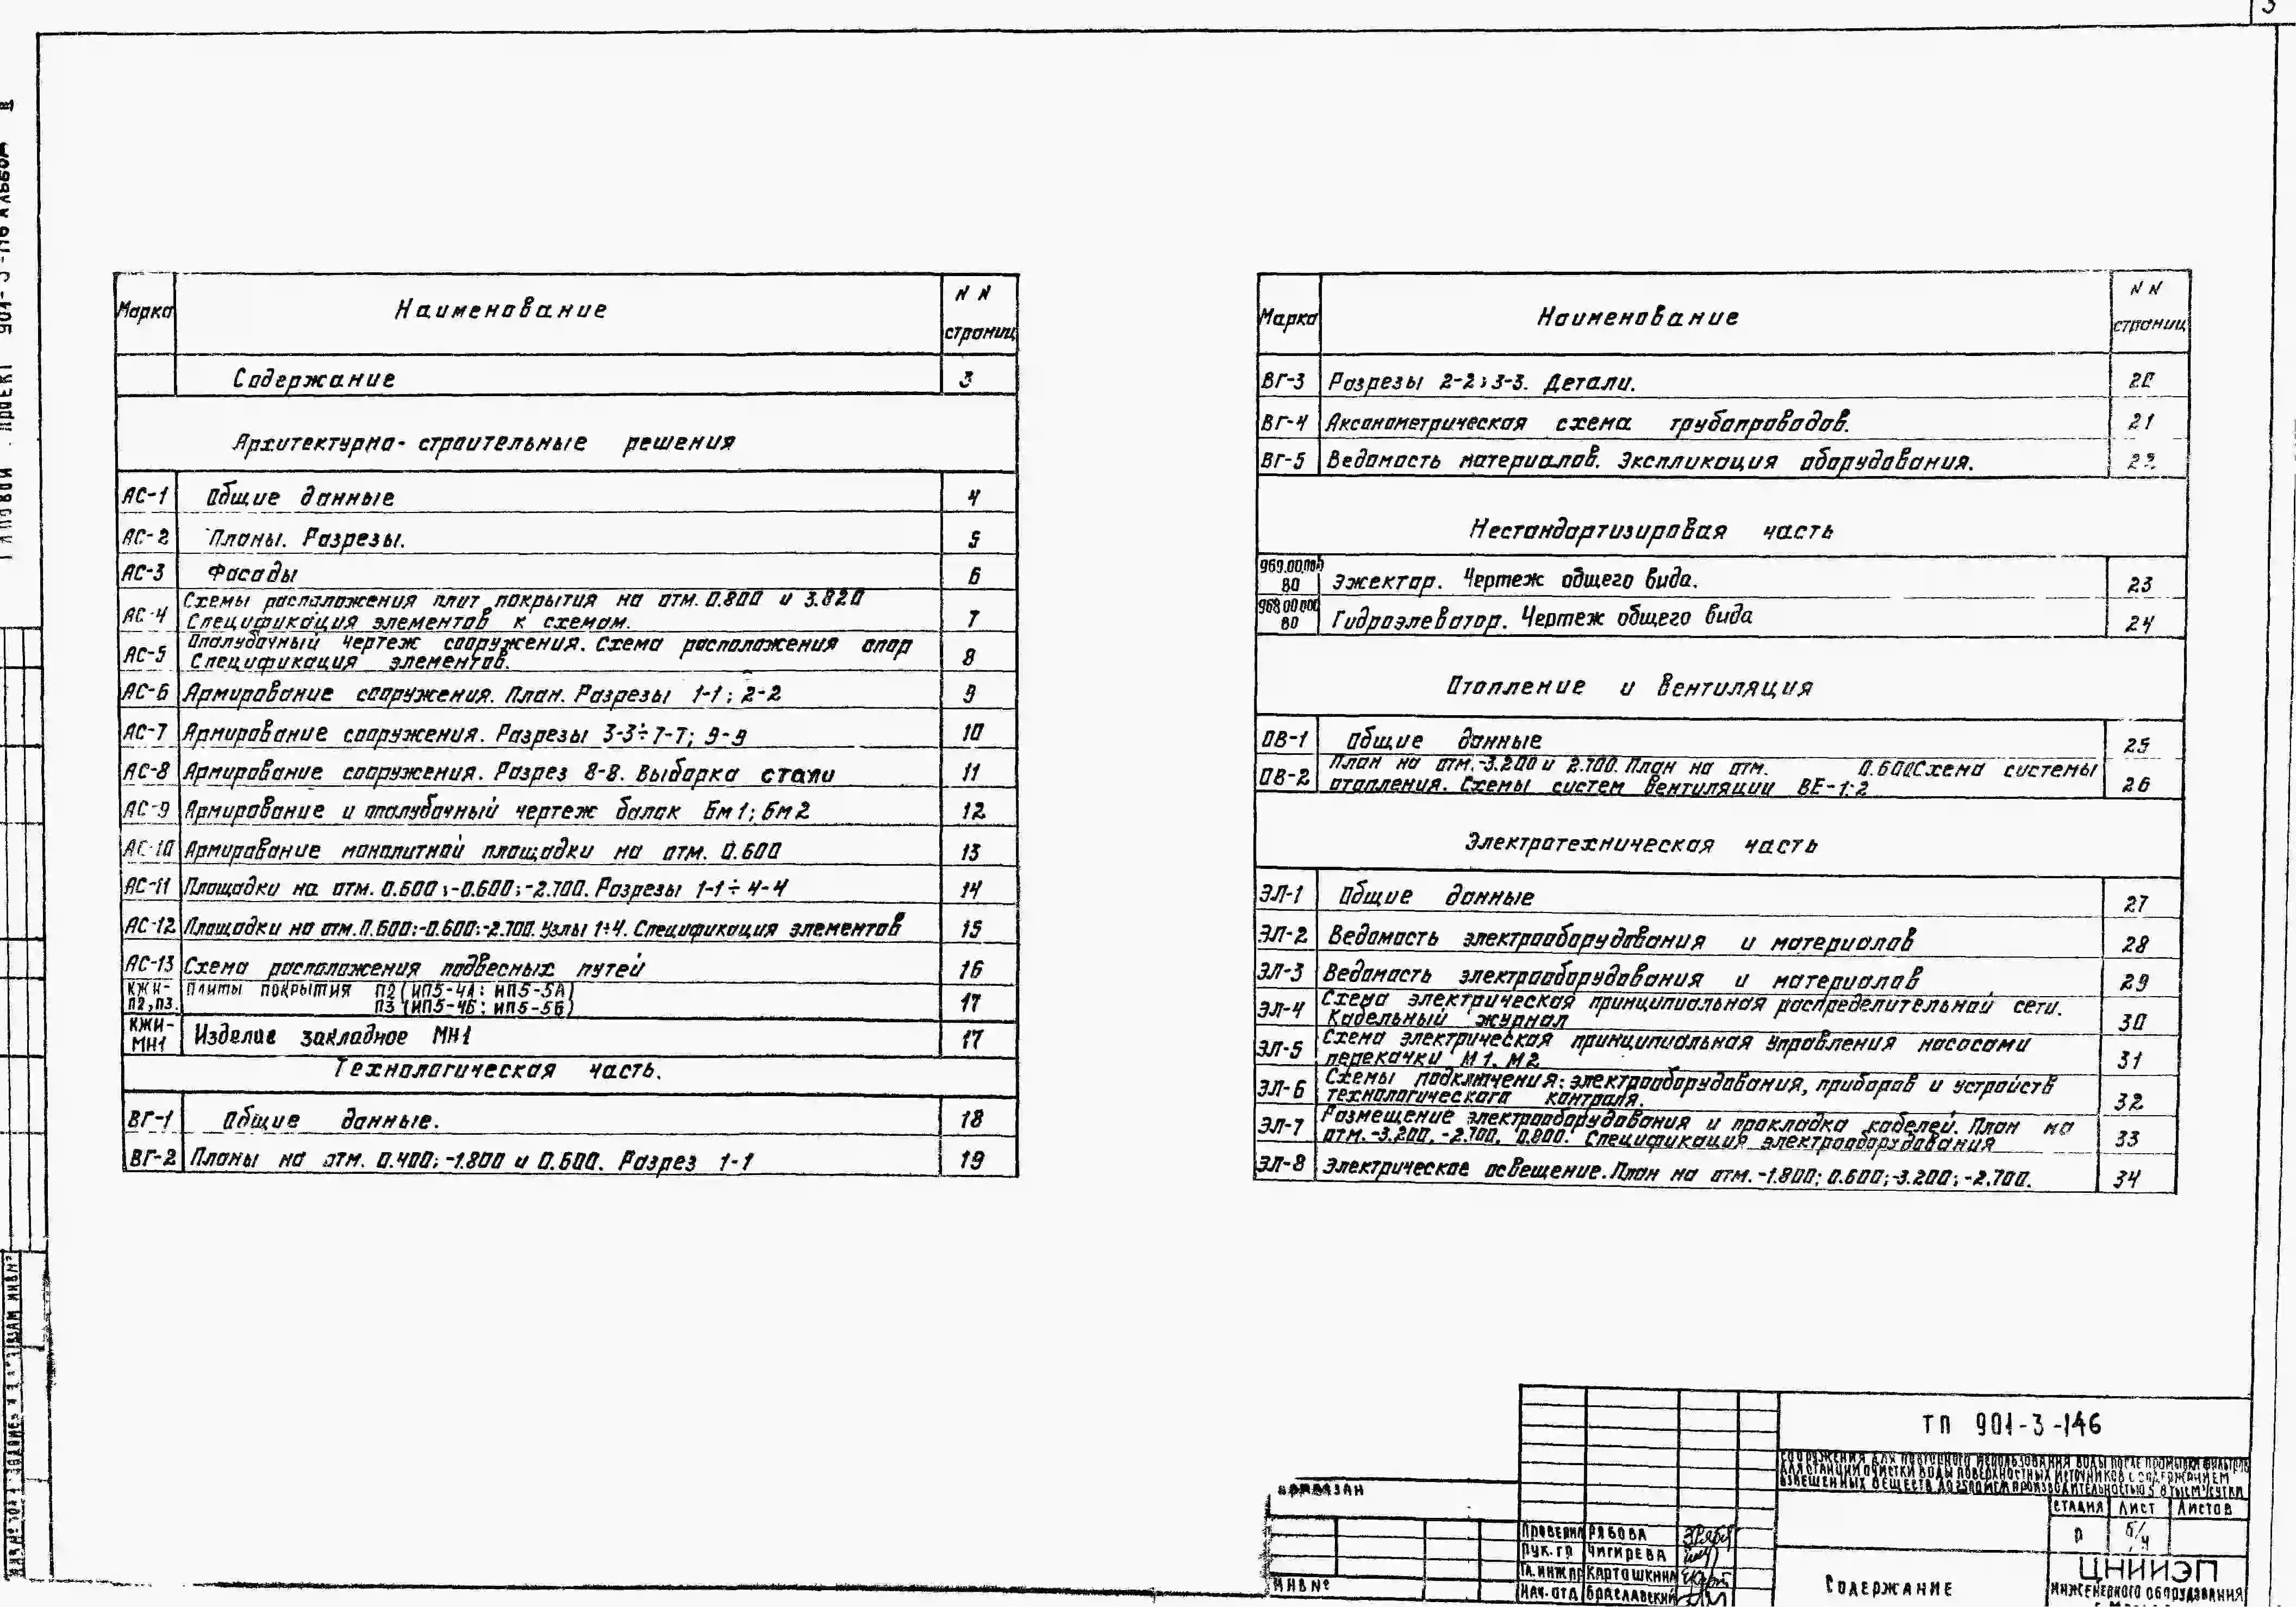 3
Марка Наименование N N страниц
Содержание 3
Архитектурно-строительные решения
АС-1 Общие данные 4
АС-2 Планы. Разрезы. 5
АС-3 Фасады 6
АС-4 Схемы расположения плит покрытия на отм. 0.800 и 3.820
Спецификация элементов к схемам. 7
АС-5 Опалубочный чертеж сооружения. Схема расположения опор
Спецификация элементов. 8
АС-6 Армирование сооружения. План. Разрезы 1-1; 2-2 9
АС-7 Армирование сооружения. Разрезы 3-3÷7-7; 9-9 10
АС-8 Армирование сооружения. Разрез 8-8. Выборка стали 11
АС-9 Армирование и опалубочный чертеж балок Бм1; Бм2 12
АС-10 Армирование монолитной площадки на отм. 0.600 13
АС-11 Площадки на отм. 0.600; -0.600; -2.700. Разрезы 1-1÷4-4 14
АС-12 Площадки на отм. 0.600; -0.600; -2.700. Узлы 1÷4. Спецификация элементов 15
АС-13 Схема расположения подвесных путей 16
КЖИ-П2,П3. Плиты покрытия П2 (ИП5-4А; ИП5-5А)
П3 (ИП5-4Б; ИП5-5Б) 17
КЖИ-МН1 Изделие закладное МН1 17
Технологическая часть.
ВГ-1 Общие данные. 18
ВГ-2 Планы на отм. 0.400; -1.800 и 0.600. Разрез 1-1 19
Марка Наименование N N страниц
ВГ-3 Разрезы 2-2; 3-3. Детали. 20
ВГ-4 Аксонометрическая схема трубопроводов. 21
ВГ-5 Ведомость материалов. Экспликация оборудования. 22
Нестандартизировая часть
969.00.000 ВО Эжектор. Чертеж общего вида. 23
968.00.000 ВО Гидроэлеватор. Чертеж общего вида 24
Отопление и вентиляция
ОВ-1 Общие данные 25
ОВ-2 План на отм. -3.200 и 2.700. План на отм. 0.600 Схема системы
отопления. Схемы систем вентиляции ВЕ-1;2 26
Электротехническая часть
ЭЛ-1 Общие данные 27
ЭЛ-2 Ведомость электрооборудования и материалов 28
ЭЛ-3 Ведомость электрооборудования и материалов 29
ЭЛ-4 Схема электрическая принципиальная распределительной сети.
Кабельный журнал 30
ЭЛ-5 Схема электрическая принципиальная управления насосами
перекачки М1, М2 31
ЭЛ-6 Схемы подключения: электрооборудования, приборов и устройств
технологического контроля. 32
ЭЛ-7 Размещение электрооборудования и прокладка кабелей. План на
отм. -3.200, -2.700, 0.800. Спецификация электрооборудования 33
ЭЛ-8 Электрическое освещение. План на отм. -1.800; 0.600; -3.200; -2.700. 34
ТП 901-3-146
Сооружения для повторного использования воды после промывки фильтров
для станции очистки воды поверхностных источников с содержанием
взвешенных веществ до
Стадия Лист Листов
Р
Содержание
ЦНИИЭП
инженерного оборудования
Привязан
Инв №
Проверил Рябова
Рук. гр Чигирева
Гл. инж. пр Карташкина
Нач. отд Браславский